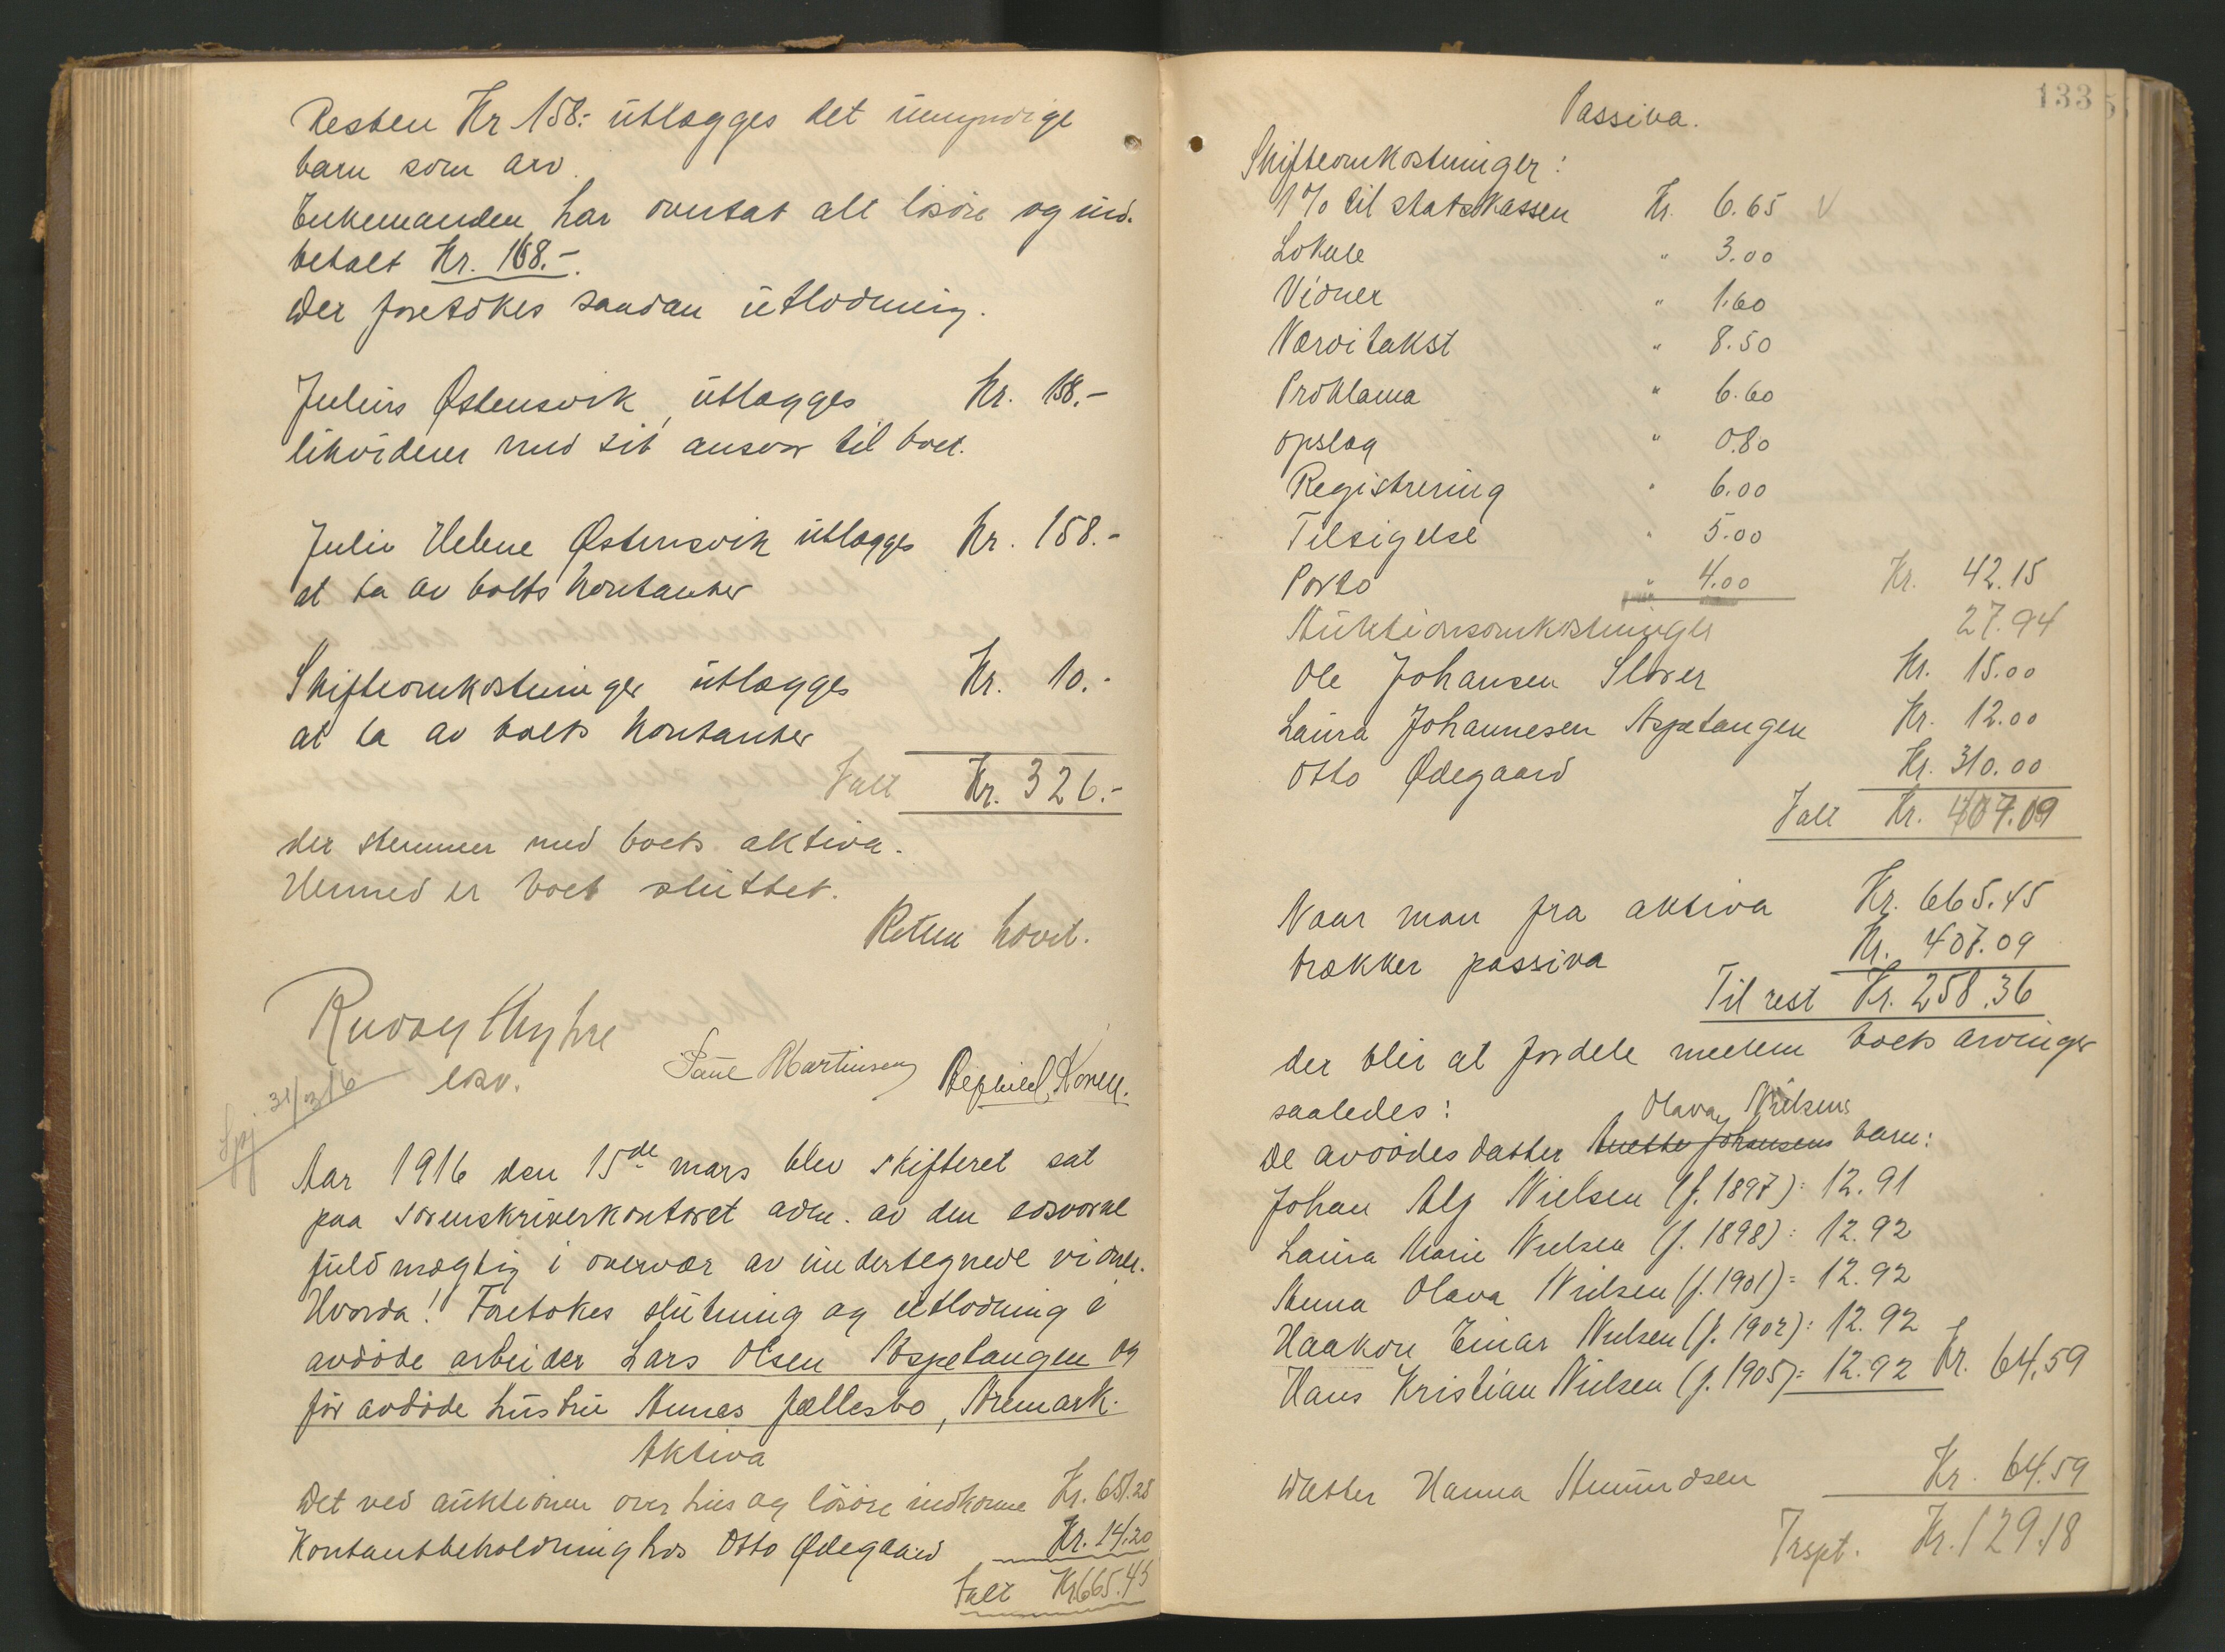 Resten Kr 158.- utlægges det umyndige
barn som arv.
Enkemanden har overtat alt løsøre og ind-
betalt Kr. 168.-.
Der foretokes saadan utlodning.
Julius Østensvik utlægges Kr. 158.-
likviderer med sit ansvar til boet.
Julie Helene Østensvik utlægges Kr. 158.-
at ta av boets kontanter
Skifteomkostninger utlægges Kr. 10.-
at ta av boets kontanter
Ialt Kr. 326.-
der stemmer med boets aktiva.
Hermed er boet sluttet.
Retten hævet.
Rudolf Thyhre
edsv.
Paul Martinsen
Koren.
31/3 16
Aar 1916 den 15de mars blev skifteret sat
paa sorenskriverkontoret adm. av den edsvorne
fuldmægtig i overvær av undertegnede vidner.
Hvorda! Foretokes slutning og utlodning i
avdøde arbeider Lars Olsen Aspetangen og
før avdøde hustru Annes fællesbo, Aremark.
Aktiva
Det ved auktionen over hus og løsøre indkomne Kr. 651.25
Kontantbeholdning hos Otto Ødegaard Kr. 14.20
Ialt Kr 665.45
133
Passiva.
Skifteomkostninger:
1% til statskassen Kr. 6.65 V
Lokale " 3.00
Vidner " 1.60
Værditakst " 8.50
Proklama " 6.60
opslag " 0.80
Registrering " 6.00
Tilsigelse " 5.00
Porto " 4.00 Kr. 42.15
Auktionsomkostninger 27.94
Ole Johansen Slorer Kr. 15.00
Laura Johannesen Aspetangen Kr. 12.00
Otto Ødegaard Kr. 310.00
Ialt Kr. 407.09
Naar man fra aktiva Kr. 665.45
trækker passiva Kr. 407.09
Til rest Kr. 258.36
der blir at fordele mellem boets arvinger
saaledes:
Olava Nielsens
De avdødes datter Anette Johansens barn:
Johan Alf Nielsen (f. 1897): 12.91
Laura Marie Nielsen (f. 1898): 12.92
Anna Olava Nielsen (f. 1901) = 12.92
Haakon Einar Nielsen (f. 1902): 12.92
Hans Kristian Nielsen (f. 1905) = 12.92 Kr. 64.59
datter Hanna Amundsen Kr. 64.59
Trspt. Kr. 129.18